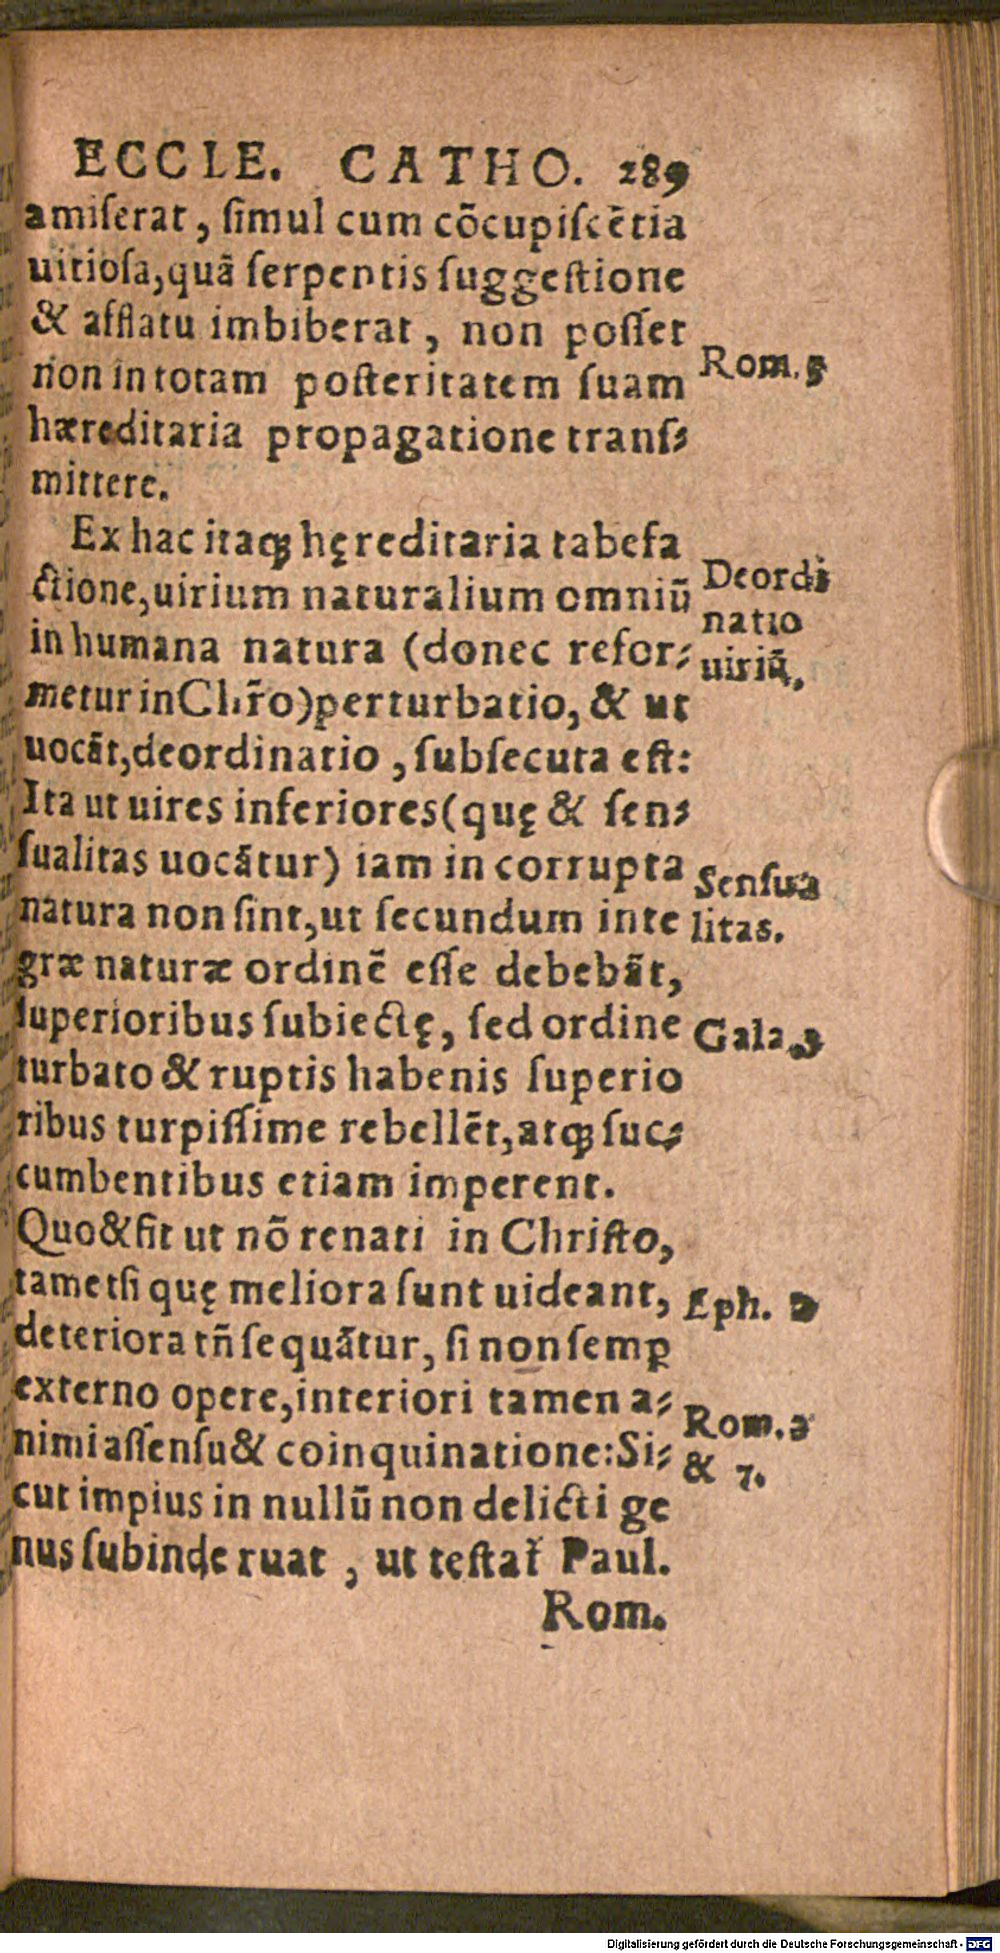 ECCLE. CATHO. 289
amiſerat, ſimul cum cõcupiſcẽtia
uitioſa,quã ſerpentis ſuggeſtione
& afflatu imbiberat, non poſſet
non in totam poſteritatem ſuam
hæreditaria propagatione tranſ⸗
mittere.
Rom. 5
Ex hac itaqꝫ hęreditaria tabefa
ctione,uirium naturalium omniũ
in humana natura (donec refor⸗
metur in Chr̃o)perturbatio, & ut
uocãt,deordinatio, ſubſecuta eſt:
Ita ut uires inferiores(quę & ſen⸗
ſualitas uocãtur) iam in corrupta
natura non ſint,ut ſecundum inte
græ naturæ ordinẽ eſſe debebãt,
ſuperioribus ſubiectę, ſed ordine
turbato & ruptis habenis ſuperio
ribus turpiſſime rebellẽt,atqꝫ ſuc⸗
cumbentibus etiam imperent.
Deordi
natio
uiriũ,
Senſua
litas.
Gala.
Quo&fit ut nõ renati in Chriſto,
tametſi quę meliora ſunt uideant,
deteriora tñ ſequãtur, ſi non ſemꝑ
externo opere,interiori tamen a⸗
nimi aſſenſu& coinquinatione:Si⸗
cut impius in nullũ non delicti ge
nus ſubinde ruat, ut teſtat᷑ Paul.
Eph.
Rom.
& 7.
Rom.
Digitalisierung gefördert durch die Deutsche Forschungsgemeinschaft - DFG